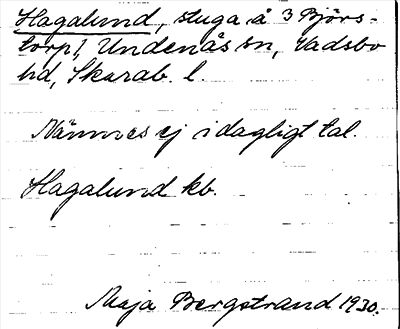 Hagalund, stuga å 3 Björs-
torp, Undenäs sn, Vadsbo
hd, Skarab. l.
Nämnes ej i dagligt tal.
Hagalund kb.
Maja Bergstrand 1930.